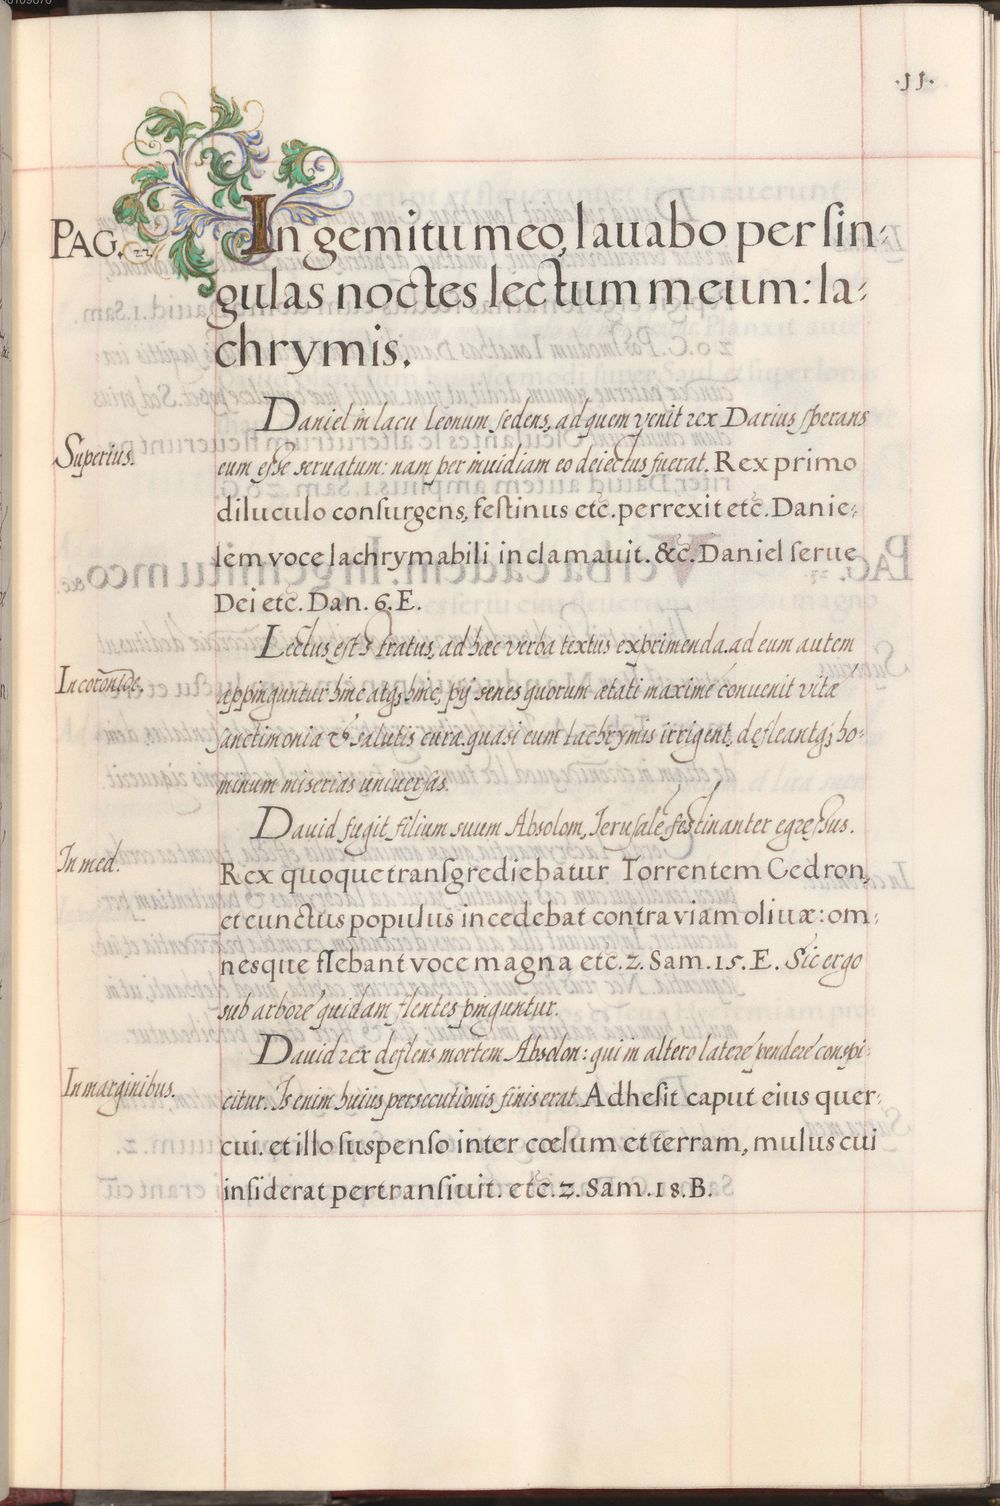 ·11·
PAG. 22.
In gemitu meo, lauabo per sin-
gulas noctes lectum meum: la-
chrymis.
Superius.
Daniel in lacu Leonum sedens, ad quem venit rex Darius sperans
eum esse seruatum: nam per inuidiam eo deiectus fuerat. Rex primo
diluculo consurgens, festinus etc. perrexit etc. Danie-
lem voce lachrymabili inclamauit. &c. Daniel serue
Dei etc. Dan. 6. E.
In coronide,
Lectus est stratus, ad hæc verba textus exprimenda. ad eum autem
appinguntur hinc atq; hinc, pij senes quorum ætati maximè conuenit vitæ
sanctimonia & salutis cura. quasi eum lachrymis irrigent, defleantq; ho-
minum miserias uniuersas.
In med.
Dauid fugit filium suum Absolom, Ierusalē festinanter egressus.
Rex quoque transgrediebatur Torrentem Cedron,
et cunctus populus incedebat contra viam oliuæ: om-
nesque flebant voce magna etc. 2. Sam. 15. E. Sic ergo
sub arbore quidam flentes pinguntur.
In marginibus.
Dauid rex deflens mortem Absolon: qui in altero latere pendere conspi-
citur. Is enim huius persecutionis finis erat. Adhesit caput eius quer-
cui. et illo suspenso inter cœlum et terram, mulus cui
insiderat pertransiuit. etc. 2. Sam. 18. B.